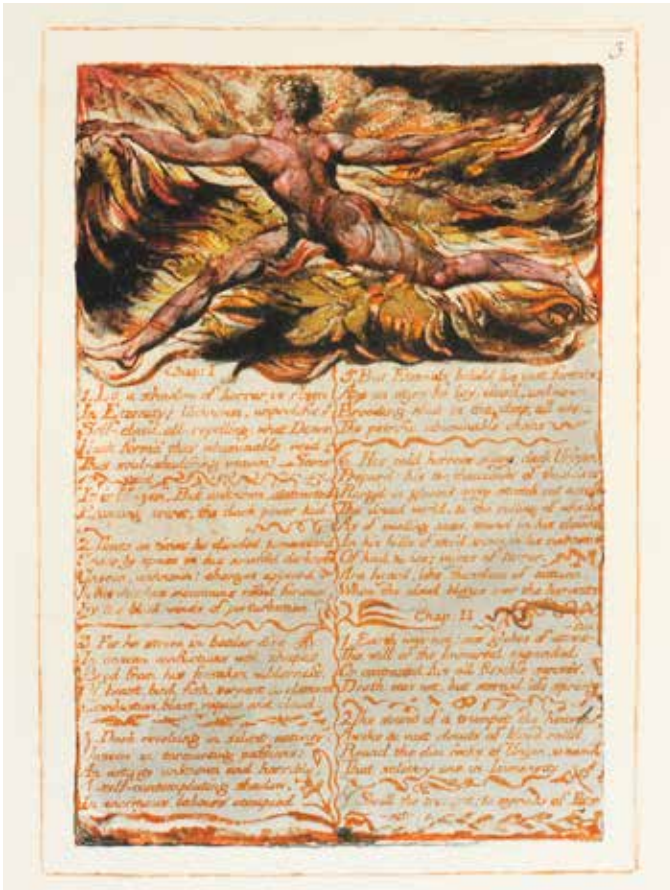 3
Chap: I
1. Lo, a shadow of horror is risen
In Eternity! Unknown, unprolific!
Self-closd, all-repelling: what Demon
Hath form'd this abominable void
This soul-shudd'ring vacuum? Some
But unknown, abstracted
Brooding secret, the dark power hid
2. Times on times he divided, & measur'd
Space by space in his ninefold
Unseen, unknown! changes appeard
In his mountains rifted furious
By the black winds of perturbation
3. For he strove in battles dire
In unseen conflictions with shapes
Bred from his forsaken wilderness
Of beast, bird, fish, serpent & element
Combustion, blast, vapour and cloud
4. Dark revolving in silent activity
Unseen in tormenting passions
An activity unknown and horrible
A self-contemplating shadow,
In enormous labours occupied
5. But Eternals beheld his vast forests
Age on ages he lay, clos'd, unknown
Brooding shut in the deep; all
The petrific abominable chaos
6. His cold horrors silent, dark Urizen
Prepar'd: his ten thousands of thunders
Rang'd in gloom'd array stretch out across
The dread world, & the rolling of wheels
As of swelling seas, sound in his clouds
In his hills of stor'd snows, in his mountains
Of hail & ice; voices of terror,
Are heard, like thunders of autumn
When the cloud blazes over the harvests
Chap: II
1. Earth was not: nor globes of
The will of the Immortal expanded
Or contracted his all flexible senses.
Death was not, but eternal life sprung
2. The sound of a trumpet the heavens
Awoke & vast clouds of blood roll'd
Round the dim rocks of Urizen, so nam'd
That solitary one in Immensity
3. Shrill the trumpet: & myriads of